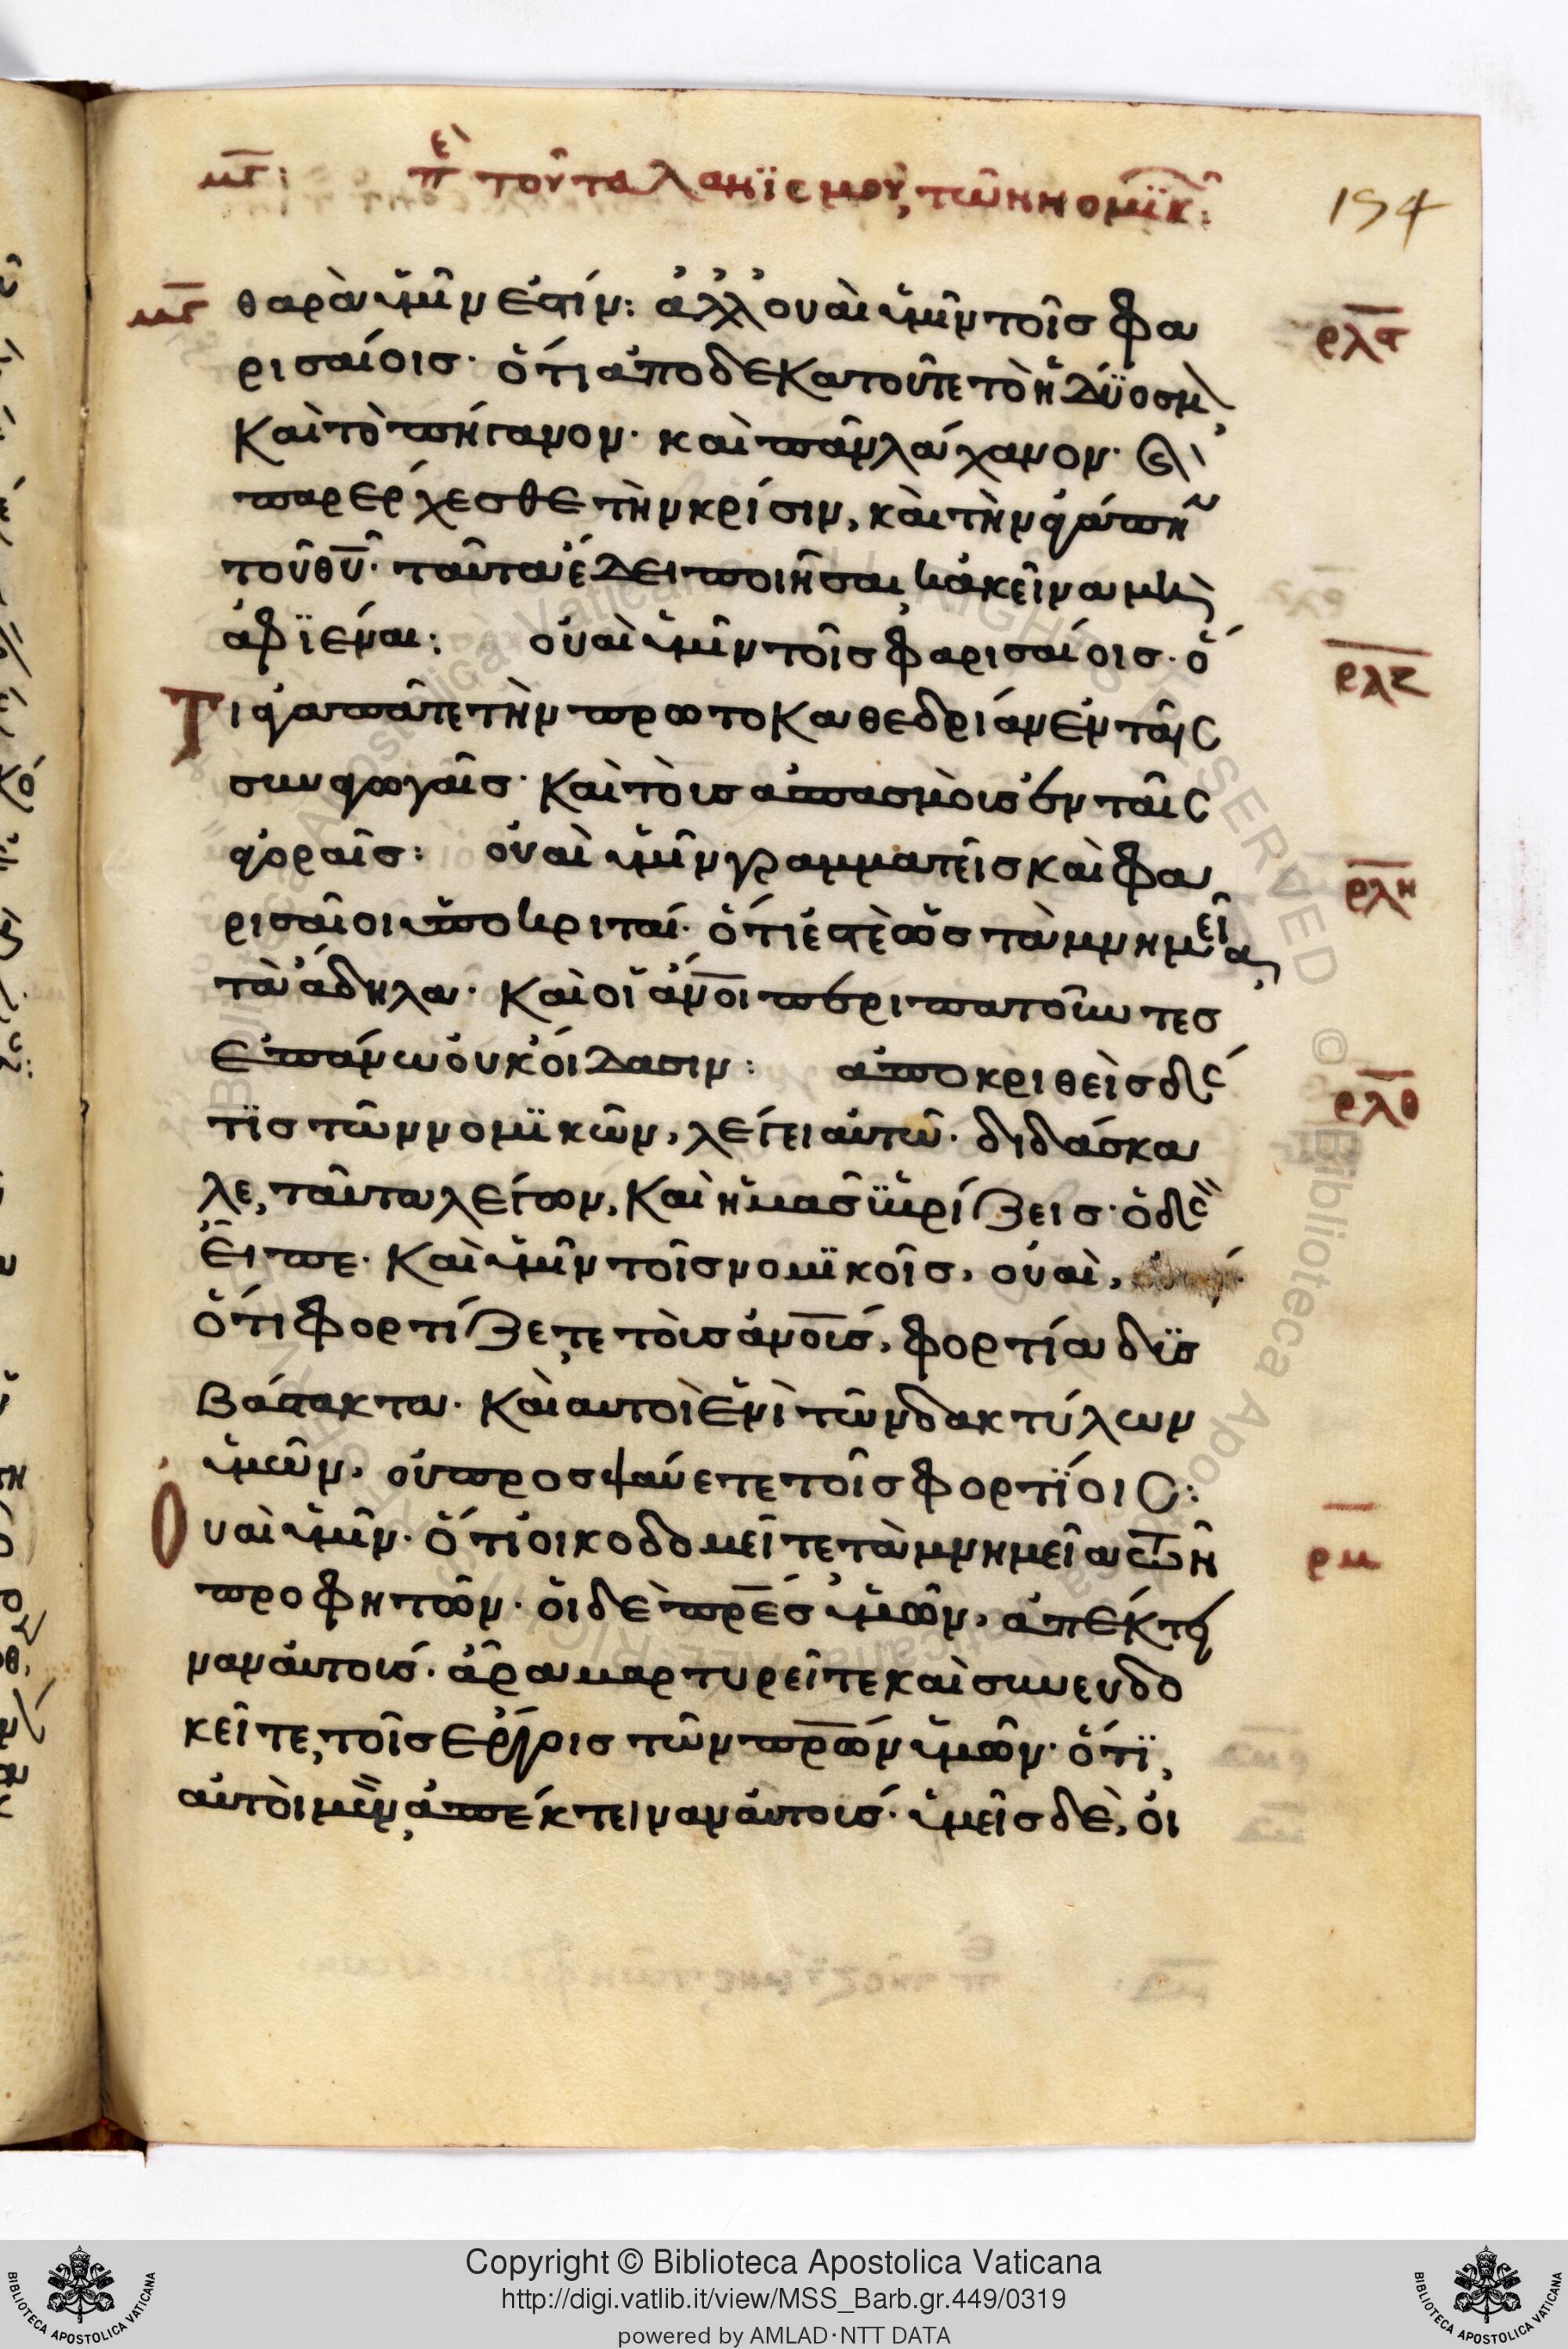 μγ: πὲ τοῦ ταλανϊσμοῦ, τῶν νομϊκ̑:
154
μγ θαρὰ ὑμῖν ἐστίν: ἀλλ οὐαὶ ὑμῖν τοῖς φα ρλϛ
ρισαίοις· ὅτι ἀποδεκατοῦτε τὸ ἡδύοσμ
καὶ τὸ πήγανον· καὶ πᾶν λάχανον· καὶ
παρέρχεσθε τὴν κρίσιν, καὶ τὴν ἀγάπη
τοῦ θῦ· ταῦτα ἔδει ποιῆσαι, κἀκεῖνα μὴ
ἀφϊέναι: οὐαὶ ὑμῖν τοῖς φαρισαίοις· ὅ ρλζ
Τι ἀγαπᾶτε τὴν πρωτοκαθεδρίαν ἐν ταῖς
συναγωγαῖς· καὶ τοὺς ἀσπασμοὺς ἐν ταῖς
ἀγοραῖς: οὐαὶ ὑμῖν γραμματεῖς καὶ φα ρλη
ρισαῖοι ὑποκριταί· ὅτι ἐστὲ ὡς τὰ μνημεῖα,
τὰ ἄδηλα· καὶ οἱ ἄνοι περιπατοῦντες
ἐπάνω οὐκ οἴδασιν: ἀποκριθεὶς δέ ρλθ
τϊς τῶν νομϊκῶν, λέγει αὐτῶ· διδάσκα
λε, ταῦτα λέγων, καὶ ἡμᾶς ὑβρίζεις· ὁ δὲ
εἶπε· καὶ ὑμῖν τοῖς νομϊκοῖς, οὐαὶ,
ὅτι φορτίζετε τοὺς ἀνους, φορτία δϋσ
βάστακτα· καὶ αὐτοὶ ἑνὶ τῶν δακτύλων
ὑμῶν, οὐ προσψαύετε τοῖς φορτϊοις:
Οὐαὶ ὑμῖν· ὅτι οἰκοδομεῖτε τὰ μνημεῖα τῶν ρμ
προφητῶν· οἱ δὲ πρες ὑμῶν, ἀπέκτει
ναν αὐτούς· ἄρα μαρτυρεῖτε καὶ συνευδο
κεῖτε, τοῖς ἔργοις τῶν πρων ὑμῶν· ὅτϊ,
αὐτοὶ μὲν, ἀπέκτειναν αὐτούς· ὑμεῖς δὲ, οἰ
Copyright © Biblioteca Apostolica Vaticana
http://digi.vatlib.it/view/MSS_Barb.gr.449/0319
powered by AMLAD·NTT DATA